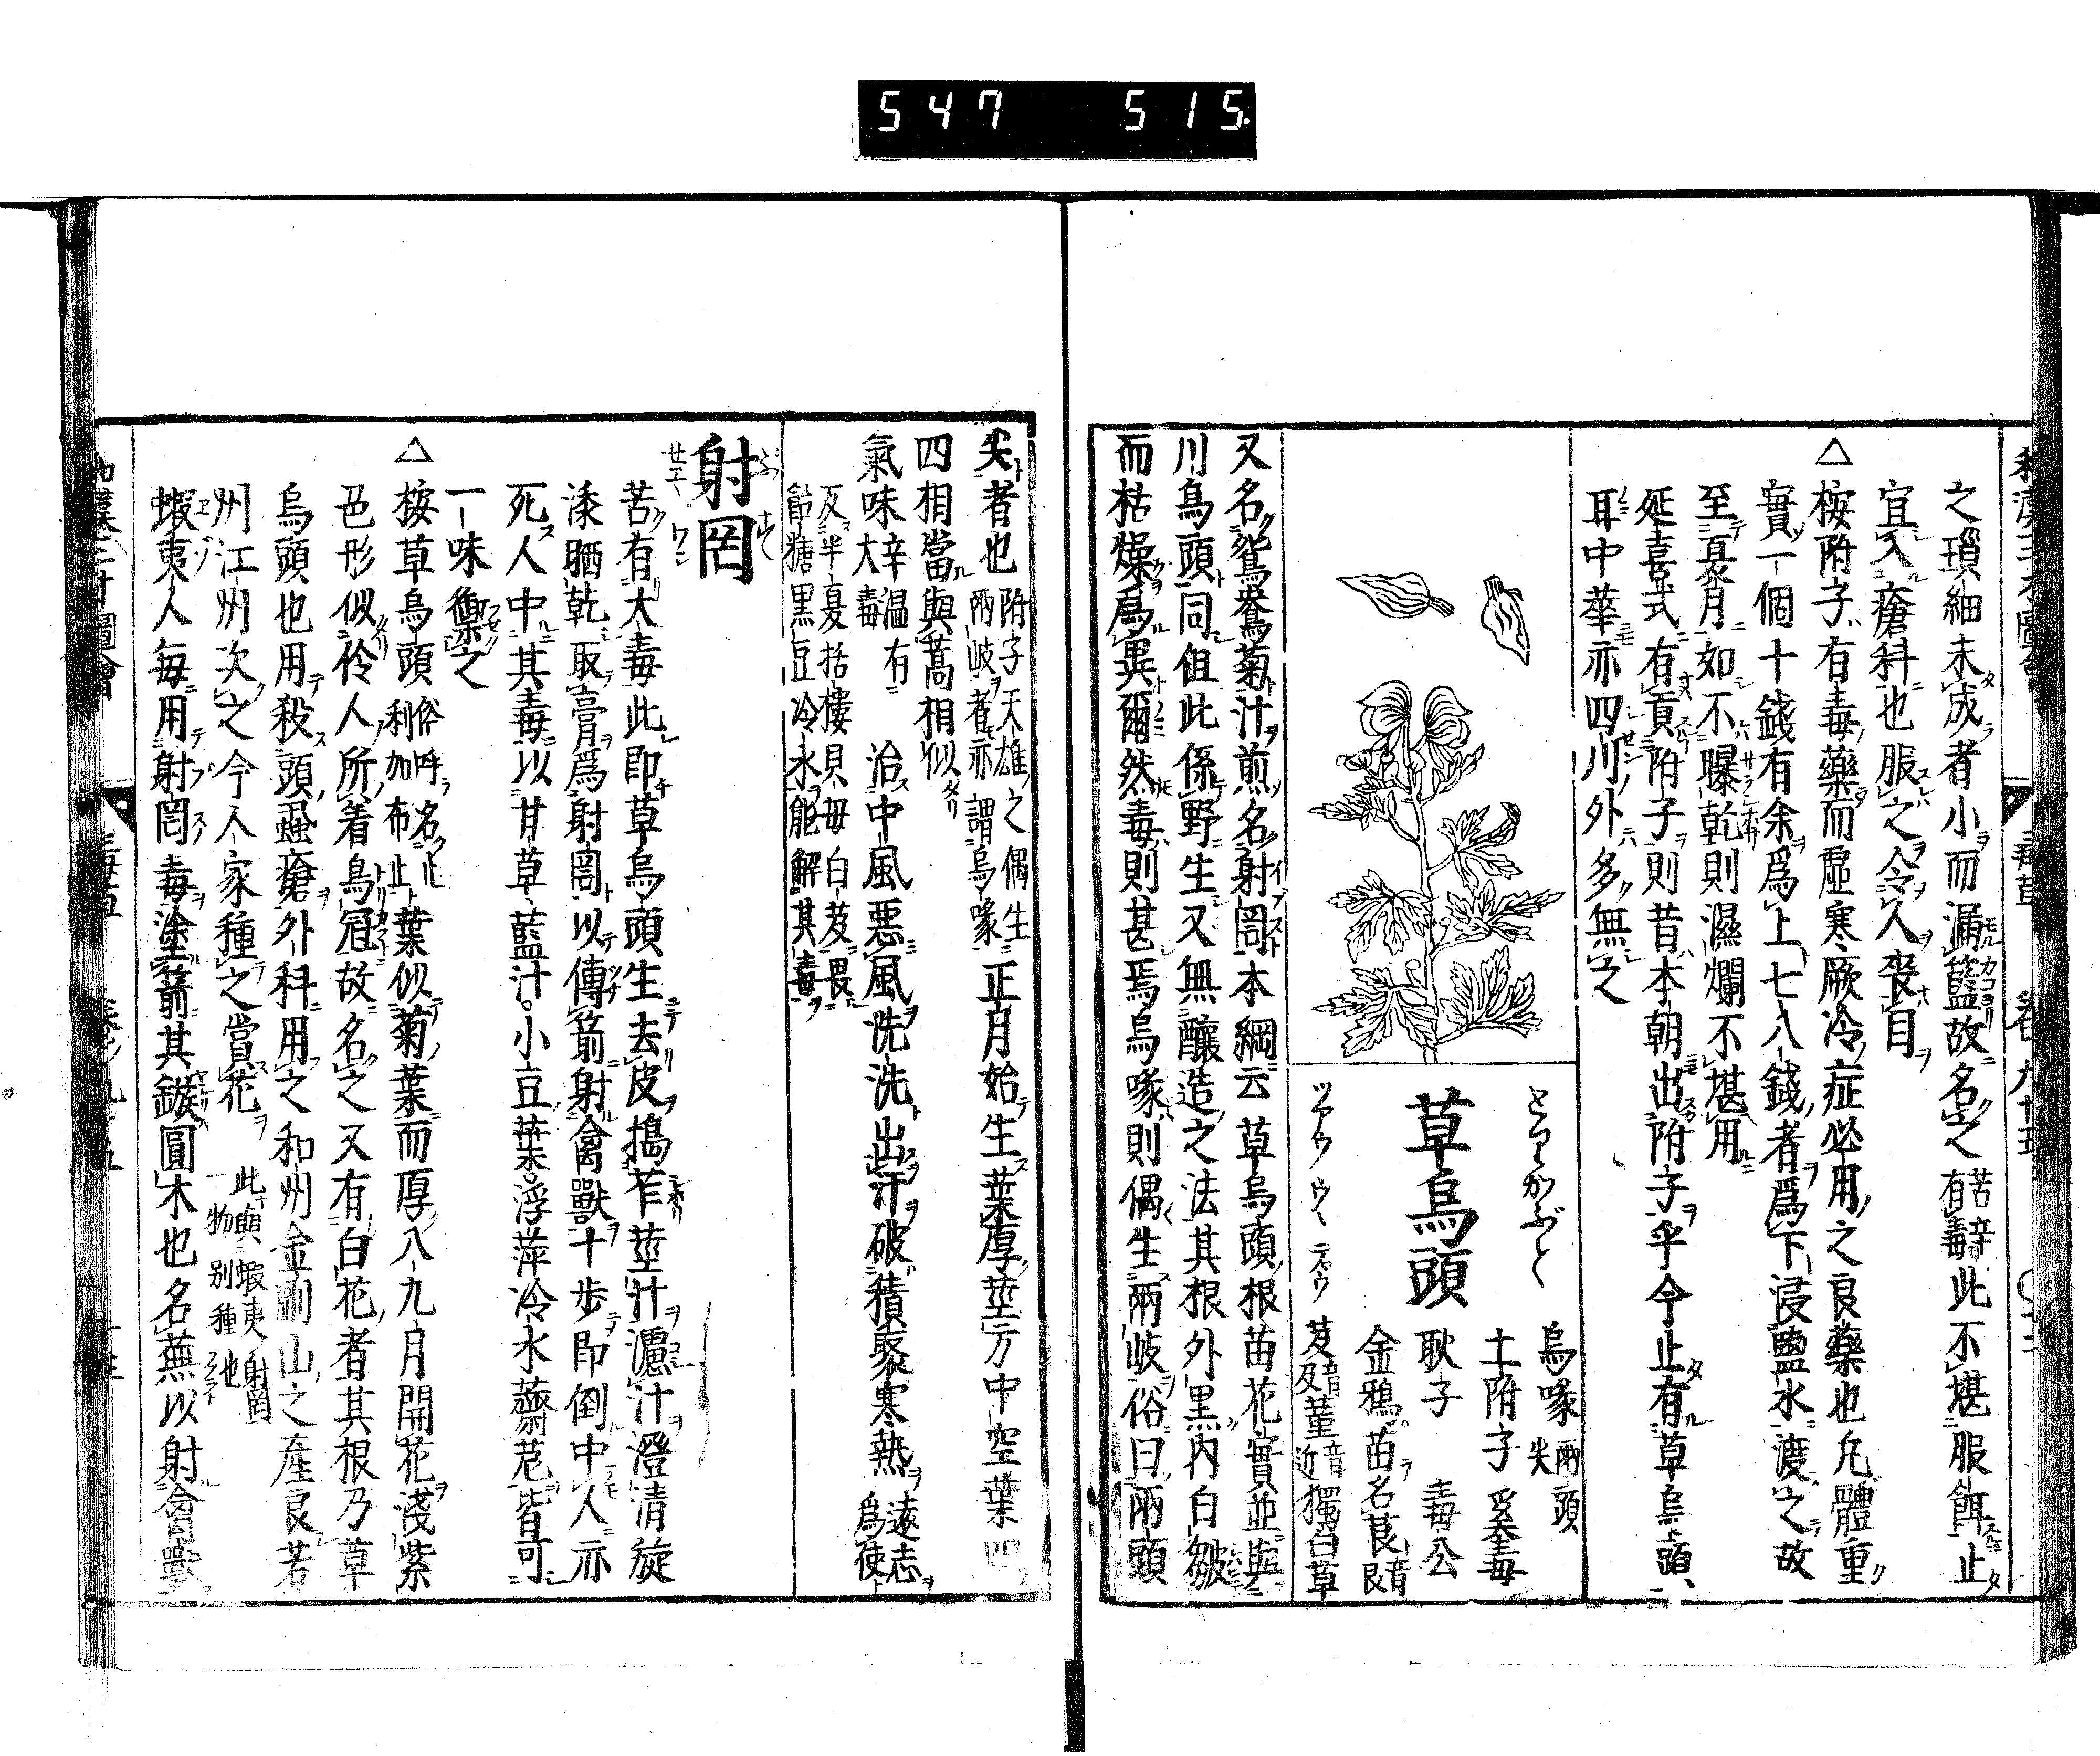 547 515
之瑣細未成者小而漏籃故名之 苦辛有毒 此不堪服餌止
宜入瘡科也服之令人喪目
△ 桉附子有毒藥而虛寒厥冷症必用之良藥也凡體重
實一個十錢有余爲上七八錢者爲下浸鹽水渡之故
至夏月如不曝乾則濕爛不堪用
延喜式有貢附子則昔本朝出附子乎今止有草烏頭
耳中華亦四川外多無之
とりかぶと
草烏頭
ツアウ ウヽ テウ
烏喙 兩頭尖
土附子 奚毒
耿子 毒公
金鴉 苗名莨 音艮
芨 音及 菫 音近 獨白草
又名鴛鴦菊汁煎名射罔本綱云草烏頭根苗花實並與
川烏頭同但此係野生又無釀造之法其根外黒內白皺
而枯燥爲異爾然毒則甚焉烏喙則偶生兩岐俗曰兩頭
尖者也 附子天雄之偶生兩岐者亦謂烏喙 正月始生葉厚莖方中空葉四
四相當與蒿相似
氣味 辛温有大毒 治中風惡風洗洗出汗破積聚寒熱 遠志爲使
反半夏括樓貝母白芨畏
飴糖黒豆冷水能解其毒
射罔
ぶす
苦有大毒此即草烏頭生去皮搗莋莖汁濾汁澄清旋
漆晒乾取膏爲射罔以傳箭射禽獸十歩即倒中人亦
死人中其毒以甘草藍汁。小豆葉。浮萍冷水薺苨皆可
一味禦之
△ 桉草烏頭 俗呼名止利加布止 葉似菊葉而厚八九月開花淺紫
色形似伶人所着鳥冠故名之又有白花者其根乃草
烏頭也用殺頭虱瘡外科用之和州金剛山之産良若
州江州次之今人家種之賞花 此與蝦夷射罔一物別種也
蝦夷人每用射罔毒塗箭其鏃圓木也名蕪以射禽獸